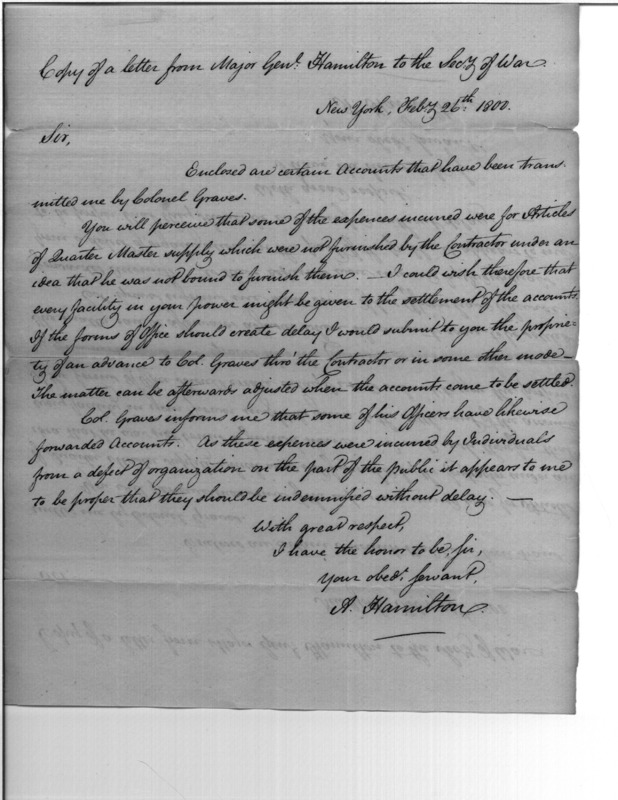 Copy of a letter from Major Genl. Hamilton to the Secy of War.
New York, Feby 26th. 1800.
Sir,
Enclosed are certain Accounts that have been trans-
mitted me by Colonel Graves.
You will perceive that some of the expences incurred were for Articles
of Quarter Master supply which were not furnished by the Contractor under an
idea that he was not bound to furnish them. — I could wish therefore that
every facility in your power might be given to the settlement of the accounts.
If the forms of Office should create delay I would submit to you the proprie-
ty of an advance to Col. Graves thro' the Contractor or in some other mode —
The matter can be afterwards adjusted when the accounts come to be settled.
Col. Graves informs me that some of his Officers have likewise
forwarded Accounts. As these expences were incurred by Individuals
from a defect of organization on the part of the public it appears to me
to be proper that they should be indemnified without delay. —
With great respect,
I have the honor to be, Sir,
Your obedt. servant,
A. Hamilton.